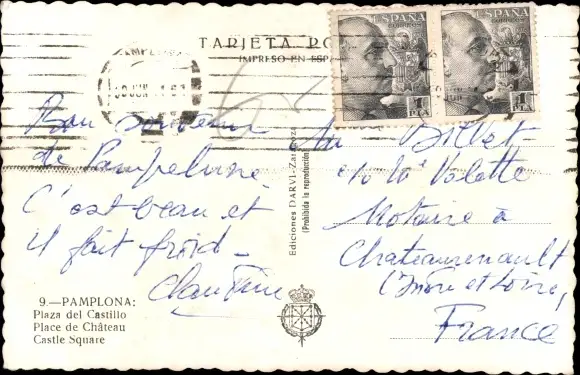 TARJETA PO
IMPRESO EN ESPA
PAMPLONA
ESPAÑA
CORREOS
ESPAÑA
CORREOS
Bon souvenir
de Pampelune.
C'est beau et
il fait froid -
Ediciones DARVI-Zaragoza
(Prohibida la reproducción)
Billet
c/o Me Valette
Notaire à
Chateaurenault
(Indre et Loire,
France
9.—PAMPLONA:
Plaza del Castillo
Place de Château
Castle Square